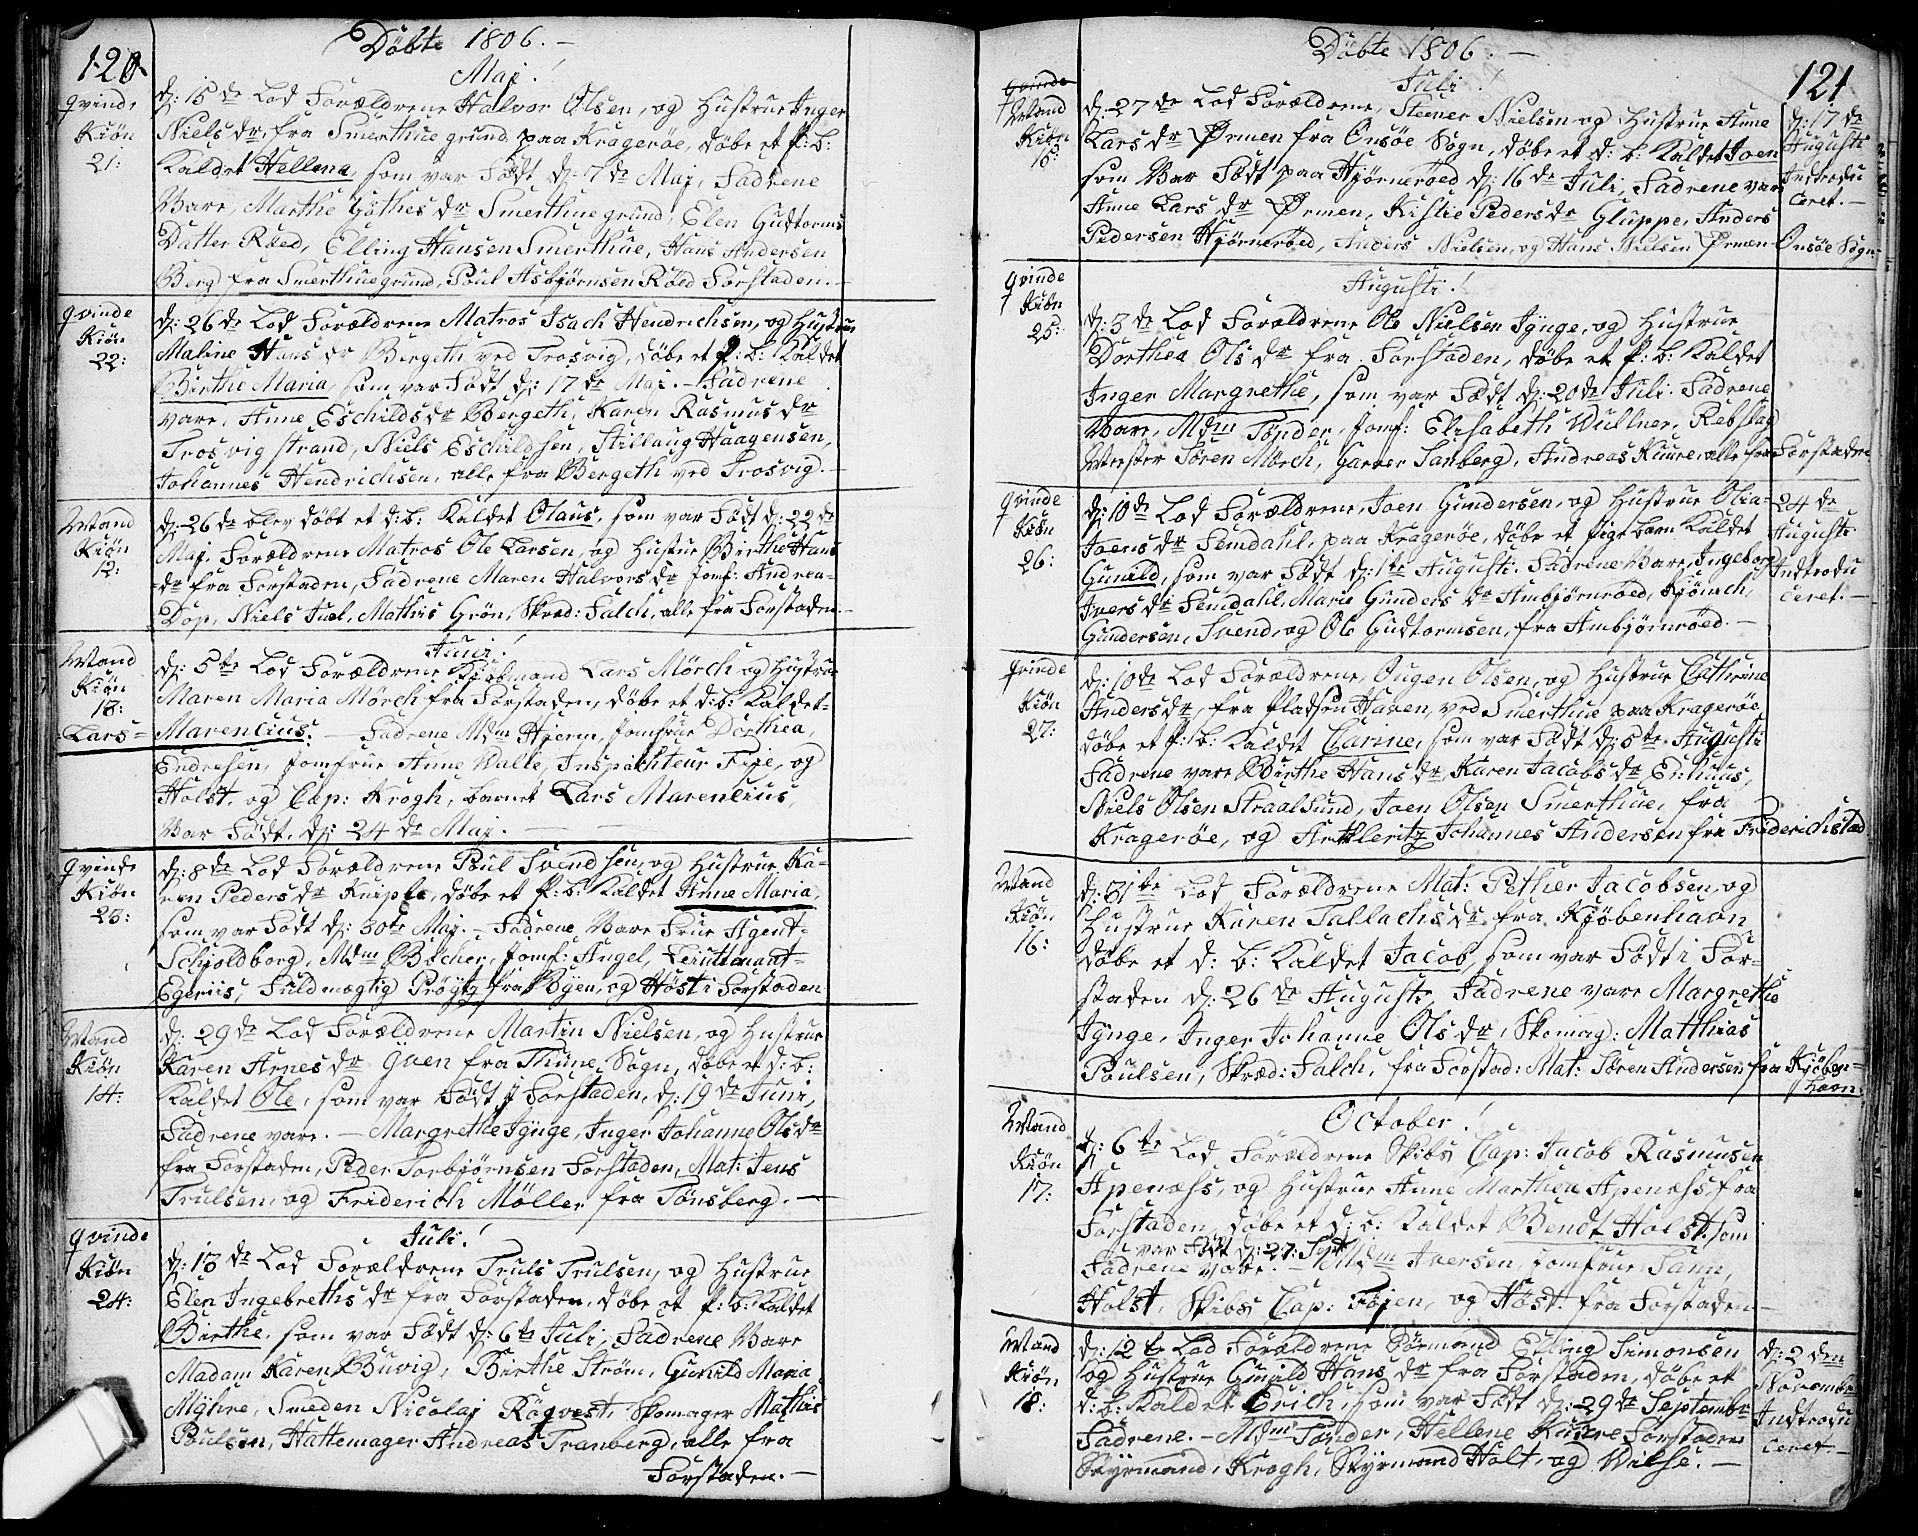 120
Döbte 1806. –
Maj!
qvinde
Kiön
21:
dj: 15 de Lod Forældrene Halvor Olsen, og Hustrue Inger
Niels dr, fra Smerthue grund paa Kragerøe, döbe et p: b:
Kaldet Hellena, som var Födt dj: 7 de Maj, Fadrene
Vare, Marthe Göthes dr Smerthuegrund, Elen Gudtorms
Datter Röed, Elling Hansen Smerthue, Hans Andersen
Berg fra Smerthuegrund, Poul Asbjørnsen Röed Forstaden. –
qvinde
Kiön
22:
dj: 26 de Lod Forældrene Matros Isach Hendrichsen, og Hustrue
Maline Hans dr Bergeth ved Trosvig, döbe et p: b: Kaldet
Birthe Maria, som var Födt dj: 17 de Maj. – Fadrene
vare, Anne Eschilds dr Bergeth, Karen Rasmus dr
Trosvig strand, Niels Eschildsen, Stillaug Haagensen,
Johannes Hendrichsen, alle fra Bergeth ved Trosvig. –
Mand
Kiön
12:
dj: 26 de blev döbt et d: b: Kaldet Olaus, som var Födt dj: 22 de
Maj. Forældrene Matros Ole Larsen, og Hustrue Birthe Hans
dr fra Forstaden, Fadrene Maren Halvors dr Jomf: Andrea
Dop, Niels Juel, Mathis Grön, Skræd: Falch, alle fra Forstaden. –
Juni!
Mand
Kiön
13:
dj: 5 te Lod Forældrene Kiöbmand Lars Mörch og Hustrue
Maren Maria Mörch fra Forstaden, döbe et d: b: Kaldet
Lars = Marencius. – Fadrene Mdm Hjerm, Jomfrue Dorthea,
Endresen, Jomfrue Anne Balle, Inspecteur Feje, og
Holst, og Cap: Krogh, barnet Lars Marencius,
Var Födt, dj: 24 de Maj. –
qvinde
Kiön
23:
dj: 8 de Lod Forældrene Poul Svendsen, og Hustrue Ka-
ren Peders dr Kniple, döbe et p: b: Kaldet Anne Maria,
som var Födt dj: 30 te Maj. – Fadrene Vare Frue Agent
Schjoldborg, Mdm Böcher, Jomf: Angel, Leutenant
Egeriis, Fuldmægtig Pröytz fra Byen, og Höst i Forstaden
Mand
Kiön
14:
dj: 29 de Lod Forældrene Martin Nielsen, og Hustrue
Karen Arnes dr Gven fra Thune Sogn, döbe et d: b:
Kaldet Ole, som var Födt i Forstaden, dj: 19 de Juni,
Fadrene vare. – Margrethe Jynge, Inger Johanne Ols dr
fra Forstaden, Peder Torbjørnsen Forstaden, Mat: Jens
Trulsen, og Friderich Möller fra Tönsberg. –
Juli!
qvinde
Kiön
24:
dj: 13 de Lod Forældrene Truls Trulsen, og Hustrue
Elen Ingebreths dr fra Forstaden, döbe et p: b: Kaldet
Birthe, som var Födt dj: 6 te Juli, Fadrene Vare
Madam Karen Buvig, Birthe Ström, Gunild Maria
Myhre, Smeden Nicolaj Röqvest, Skomager Mathis
Poulsen, Hattemager Andreas Tranberg, alle fra
Forstaden. –
Döbte 1806. –
121
Juli!
qvinde
Mand
Kiön
15:
dj: 27 de Lod Forældrene, Steener Nielsen og Hustrue Anne
Lars dr Örmen fra Onsöe Sogn, döbe et d: b: Kaldet Joen
som Var Födt paa Hjörneröed dj: 16 de Juli, Fadrene vare
Anne Lars dr Örmen, Kistie Peders dr Gluppe, Anders
Pedersen Hjörneröed, Anders Nielsen, og Hans Nielsen Örmen Onsöe Sogn
dj: 17 de
Augusti
Indtrodu
ceret. –
Augusti!
qvinde
Kiön
25:
dj: 3 de Lod Forældrene Ole Nielsen Jynge, og Hustrue
Dorthea Ols dr fra Forstaden, döbe et p: b: Kaldet
Inger Margrethe, som var Födt dj: 20 de Juli. Fadrene
Vare, Mdm Tönder, Jomf: Elisabeth Wullner, Rebslag
Mester Sören Mörch, Garver Sanberg, Andreas Kuure, alle fra Forstaden
qvinde
Kiön
26:
dj: 10 de Lod Forældrene, Joen Gundersen, og Hustrue Olia-
Joens dr Semdahl, paa Kragerøe, döbe et pige barn Kaldet
Gunild, som var Födt dj: 1 te Augusti. Fadrene Vare, Ingeborg
Ivers dr Semdahl, Marie Gunders dr Ambjörnröed, Hjönrch,
Gundersen, Svend, og Ole Gudtormsen, fra Ambjörnröed. –
24 de
Augusti
Indtrodu
ceret. –
qvinde
Kiön
27:
dj: 10 de Lod Forældrene, Ougen Olsen, og Hustrue Cathrine
Anders dr, fra Pladsen Haven, ved Smerthue paa Kragerøe
döbe et p: b: Kaldet Carine, som var Födt dj: 5 te Augusti
Fadrene vare Birthe Hans dr, Karen Jacobs dr Enhuus,
Niels Olsen Straalsund, Joen Olsen Smerthue, fra
Kragerøe, og Artileritz Johannes Andersen fra Friderichstad
Mand
Kiön
16:
dj: 31 te Lod Forældrene Mat: Pether Jacobsen, og
Hustrue Karen Tallachs dr fra Kjöbenhavn
döbe et d: b: Kaldet Jacob, som var Födt i For-
staden dj: 26 de Augusti, Fadrene vare Margrethe
Jynge, Inger Johanne Ols dr, Skomag: Matthias
Poulsen, Skræd: Falch, fra Forstad: Mat: Sören Andersen fra Kjöben-
havn
October!
Mand
Kiön
17:
dj: 6 te Lod Forældrene Skibs Cap: Jacob Rasmusen
Apenæss, og Hustrue Anne Marthea Apenæss, fra
Forstaden, döbe et d: b: Kaldet Bendt Holst, som
var Födt dj: 27: Sept
Fadrene vare. – Mdm Iversen, Jomfrue Tann,
Holst, Skibs Cap: Föjen, og Höst. fra Forstaden –
Mand
Kiön
18:
dj: 12 te Lod Forældrene Förmand Elling Simonsen
og Hustrue Gunild Hans dr fra Forstaden, döbe et
d: b: Kaldet Erich, som var Födt dj: 29 de Septembr
Fadrene. – Mdm Tönder, Hellene Kuure Forstaden
Styrmand, Krogh, Styrmand Holt, og Wilse. –
dj: 2 den
Novembr
Indtrodu
ceret. –